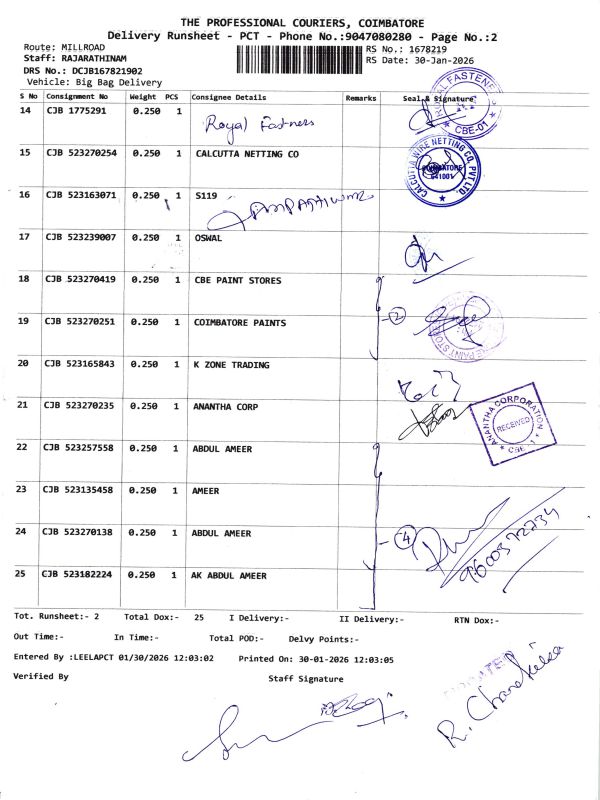 THE PROFESSIONAL COURIERS, COIMBATORE
Delivery Runsheet - PCT - Phone No.:9047080280 - Page No.:2
Route: MILLROAD
Staff: RAJARATHINAM
DRS No.: DCJB167821902
Vehicle: Big Bag Delivery
RS No.: 1678219
RS Date: 30-Jan-2026
S No Consignment No Weight PCS Consignee Details Remarks Seal & Signature
14 CJB 1775291 0.250 1 Royal Fastners
CBE-01
15 CJB 523270254 0.250 1 CALCUTTA NETTING CO
CALCUTTA WIRE NETTING CO. PVT LTD.
COIMBATORE
641001
16 CJB 523163071 0.250 1 S119
17 CJB 523239007 0.250 1 OSWAL
18 CJB 523270419 0.250 1 CBE PAINT STORES
19 CJB 523270251 0.250 1 COIMBATORE PAINTS
2
20 CJB 523165843 0.250 1 K ZONE TRADING
21 CJB 523270235 0.250 1 ANANTHA CORP
ANANTHA CORPORATION
RECEIVED
22 CJB 523257558 0.250 1 ABDUL AMEER
23 CJB 523135458 0.250 1 AMEER
24 CJB 523270138 0.250 1 ABDUL AMEER
4
25 CJB 523182224 0.250 1 AK ABDUL AMEER
Tot. Runsheet:- 2 Total Dox:- 25 I Delivery:- II Delivery:- RTN Dox:-
Out Time:- In Time:- Total POD:- Delvy Points:-
Entered By :LEELAPCT 01/30/2026 12:03:02 Printed On: 30-01-2026 12:03:05
Verified By Staff Signature